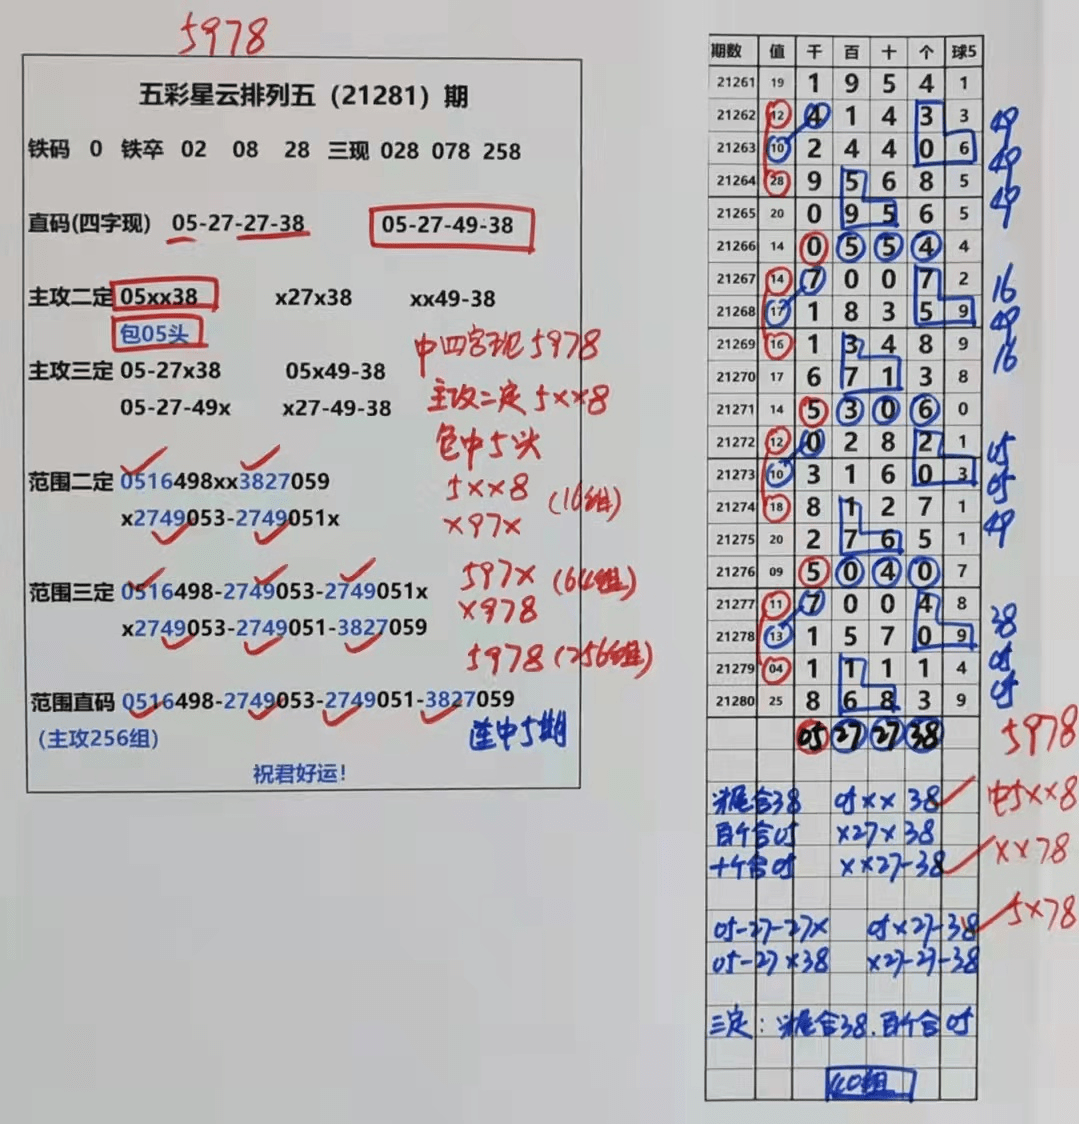 5978
五彩星云排列五（21281）期
铁码 0 铁卒 02 08 28 三现 028 078 258
直码(四字现) 05-27-27-38 05-27-49-38
主攻二定 05xx38 x27x38 xx49-38
包05头
主攻三定 05-27x38 05x49-38
05-27-49x x27-49-38
范围二定 0516498xx3827059
x2749053-2749051x
范围三定 0516498-2749053-2749051x
x2749053-2749051-3827059
范围直码 0516498-2749053-2749051-3827059
（主攻256组）
祝君好运！
中四字现5978
主攻二定5××8
包中5头
5××8 (16组)
×97×
597× (64组)
×978
5978 (256组)
连中5期
期数 值 千 百 十 个 球5
21261 19 1 9 5 4 1
21262 12 4 1 4 3 3
21263 10 2 4 4 0 6
21264 28 9 5 6 8 5
21265 20 0 9 5 6 5
21266 14 0 5 5 4 4
21267 14 7 0 0 7 2
21268 17 1 8 3 5 9
21269 16 1 3 4 8 9
21270 17 6 7 1 3 8
21271 14 5 3 0 6 0
21272 12 0 2 8 2 1
21273 10 3 1 6 0 3
21274 18 8 1 2 7 1
21275 20 2 7 6 5 1
21276 09 5 0 4 0 7
21277 11 7 0 0 4 8
21278 13 1 5 7 0 9
21279 04 1 1 1 1 4
21280 25 8 6 8 3 9
05 27 27 38
49
49
49
16
49
16
05
05
49
38
05
05
5978
头尾合38 05×× 38 中5××8
百个合05 ×27×38
十个合05 ××27-38 ××78
05-27-27× 05×27-38 5×78
05-27×38 ×27-27-38
三定：头尾合38.百个合05
40组